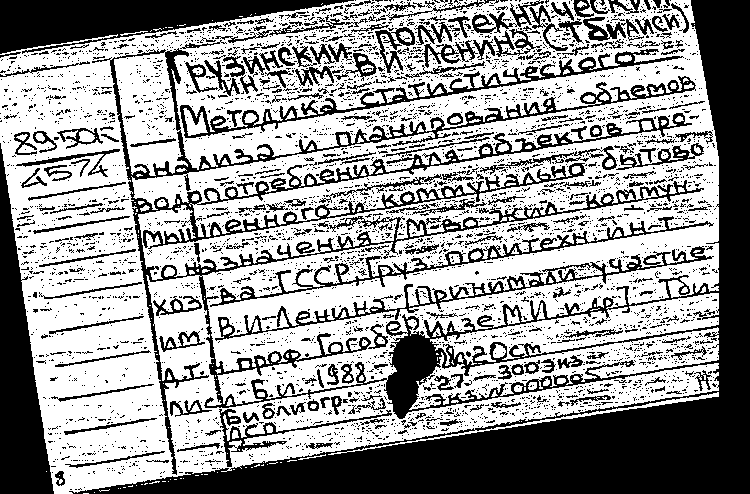 Грузинский политехнический
ин-т им. В.И Ленина (Тбилиси).
Методика статистического
89-50к
4574
анализа и планирования объемов
водопотребления для объектов про-
мышленного и коммунально бытово
го назначения / М-во жил. коммун.
хоз-ва ГССР, Груз. политехн. ин-т
им. В.И. Ленина; [Принимали участие
д.т.н. проф. Гогоберидзе М.И. и др.] - Тби-
лиси: Б.и., 1988. - 20см
Библиогр.: 27. - 300 экз
ДСП Экз. N 000005
8